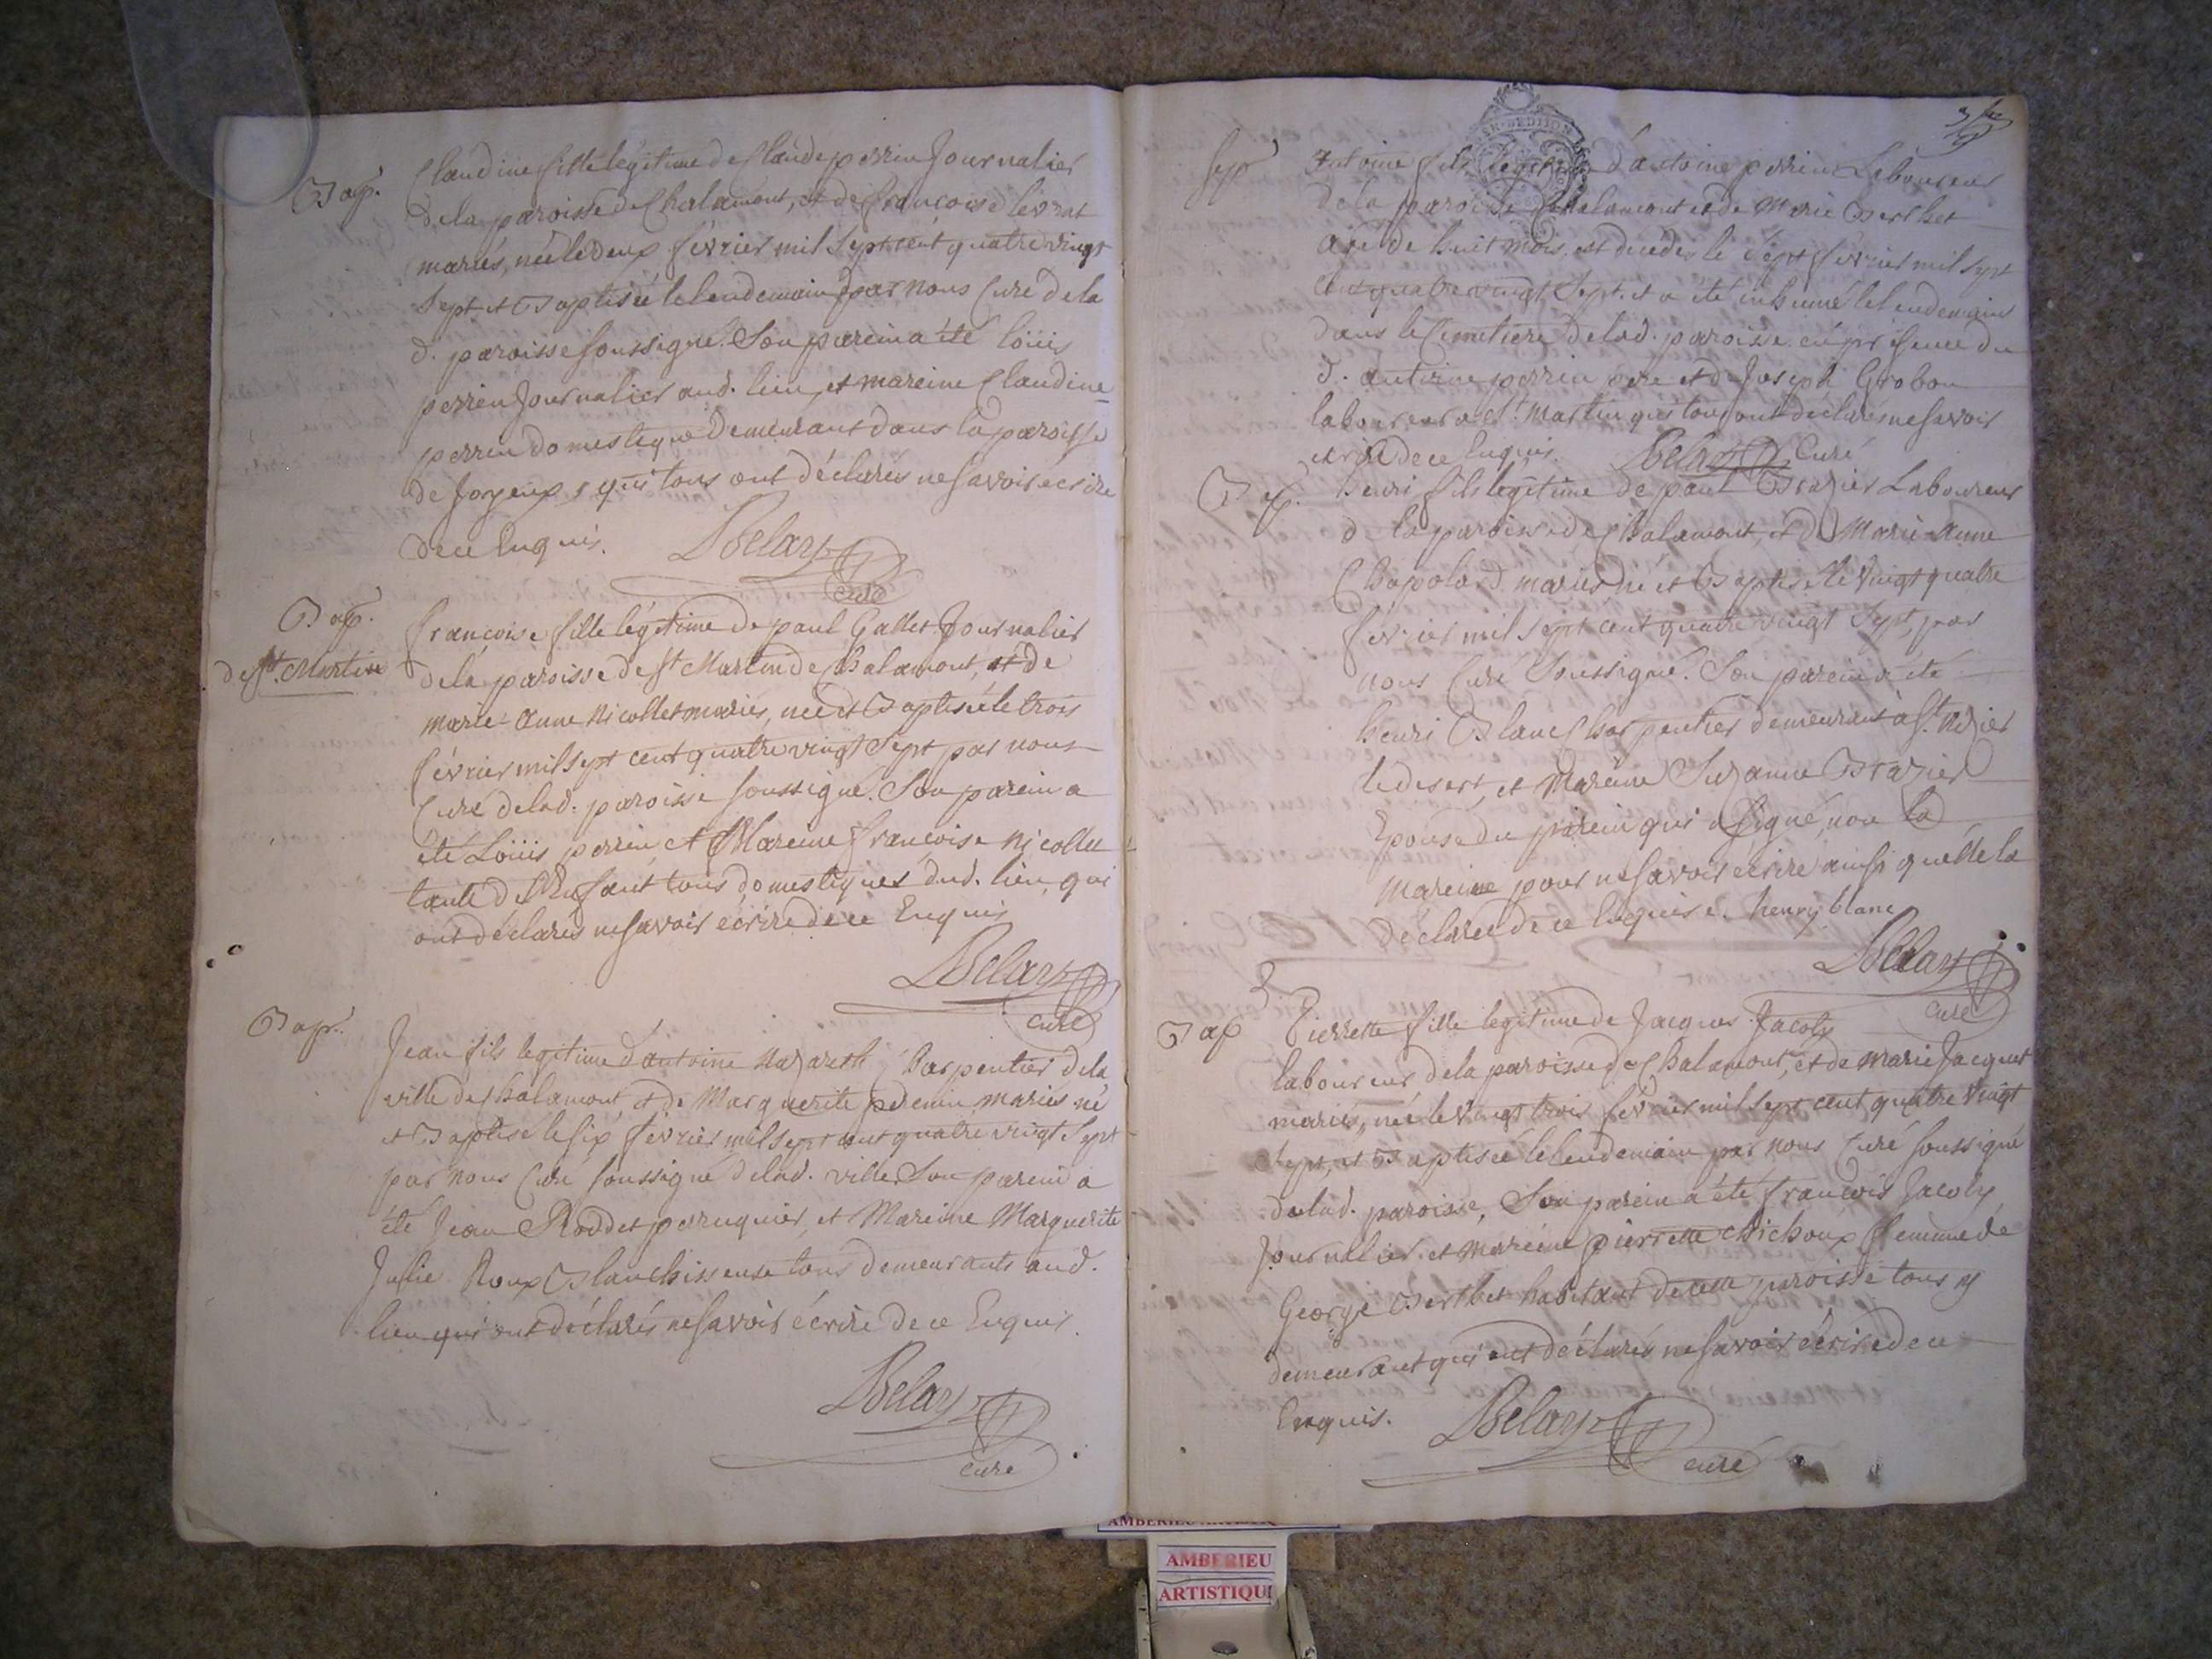 Bap.
Claudine fille légitime de Claude perrin Journalier
de la paroisse de Chalamont, et de françoise levrat
mariés, née le deux février mil sept cent quatre vingt
sept et Baptisée le lendemain par nous Curé de la
d. paroisse soussigné. Son parein a été loüis
perrin Journalier aud. lieu, et mareine Claudine
perrin domestique demeurant dans la paroisse
de Joyeux, qui tous ont déclarés ne savoir écrire
de ce Enquis.
Curé
Bap.
de St. Martin
françoise fille légitime de paul Gallet Journalier
de la paroisse de St Martin de Chalamont, et de
marie-anne Nicollet mariés, née et Baptisée le trois
février mil sept cent quatre vingt sept par nous
Curé de lad. paroisse soussigné. Son parein a
été Loüis perrin et Mareine françoise Nicollet
tante de l'Enfant tous domestiques dud. lieu, qui
ont déclarés ne savoir écrire de ce Enquis
curé
Bap.
Jean fils legitime d'antoine Nazareth Charpentier de la
ville de Chalamont et de Marguerite mariés né
et Baptisé le six février mil sept cent quatre vingt sept
par nous Curé soussigné de lad. ville. Son parein a
été Jean Roddet perruquier, et Mareine Marguerite
Julie Roux Blanchisseuse tous demeurants aud.
lieu qui ont déclarés ne savoir écrire de ce Enquis.
curé
Antoine fils légitime d'antoine perrin Laboureur
de la paroisse de Chalamont et de Marie Berthet
agé de huit mois, est décédé le sept février mil sept
cent quatre vingt sept. et a été inhumé le lendemain
dans le Cimetiere de lad. paroisse en présence du
d. antoine perrin pere et de Joseph Grobon
laboureur a St. Martin qui tous ont déclarés ne savoir
écrire de ce Enquis. Curé
Bap.
henri fils légitime de paul Brazier Laboureur
de la paroisse de Chalamont, et de Marie-Anne
Chapolard mariés né et Baptisé le vingt quatre
février mil sept cent quatre vingt sept, par
nous Curé Soussigné. Son parein a été
henri Blanc Charpentier demeurant à St. Nizier
le desert, et Mareine Suzanne Brazier
Epouse du parein qui a signé, non la
Mareine pour ne savoir écrire ainsi quelle la
déclaré de ce Enquise. henry blanc
curé
Bap
Pierrette fille legitime de Jacques Jacoly
laboureur de la paroisse de Chalamont, et de marie Jacquet
mariés, née le vingt trois février mil sept cent quatre vingt
sept, et Baptisée le lendemain par nous Curé soussigné
de lad. paroisse, Son parein a été françois Jacoly
Journalier et mareine pierrette Michoux femme de
George Berthet habitant de cette paroisse tous y
demeurant qui ont déclarés ne savoir écrire de ce
Enquis.
curé
AMBERIEU
ARTISTIQU